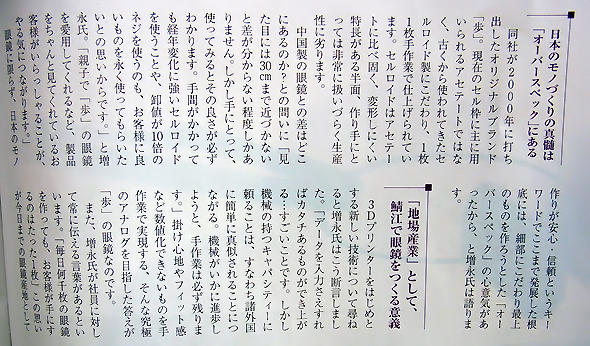 日本のモノづくりの真髄は
「オーバースペック」にある
同社が2000年に打ち
出したオリジナルブランド
「歩」。現在のセル枠に主に用
いられるアセテートではな
く、古くから使われてきたセ
ルロイド製にこだわり、1枚
1枚手作業で仕上げられてい
ます。セルロイドはアセテー
トに比べ固く、変形しにくい
特長がある半面、作り手にと
っては非常に扱いづらく生産
性に劣ります。
中国製の眼鏡との差はどこ
にあるのか?との問いに「見
た目には30cmまで近づかない
と差が分からない程度しかあ
りません。しかし手にとって、
使ってみるとその良さが必ず
わかります。手間がかかって
も経年変化に強いセルロイド
を使うことや、卸値が10倍の
ネジを使うのも、お客様に良
いものを永く使ってもらいた
いとの思いからです。」と増
永氏。「親子で「歩」の眼鏡
を愛用してくれるなど、製品
をちゃんと見てくれているお
客様がいらっしゃることが、
やる気につながります。」
眼鏡に限らず、日本のモノ
作りが安心・信頼というキー
ワードでここまで発展した根
底には、細部にこだわり最上
のものを作ろうとした「オー
バースペック」の心意気があ
ったから、と増永氏は語りま
す。
「地場産業」として、
鯖江で眼鏡をつくる意義
3Dプリンターをはじめと
する新しい技術について尋ね
ると増永氏はこう断言しまし
た。「データを入力さえすれ
ばカタチあるものができ上が
る…すごいことです。しかし
機械の持つキャパシティーに
頼ることは、すなわち諸外国
に簡単に真似されることにつ
ながる。機械がいかに進歩し
ようと、手作業は必ず残りま
す。」掛け心地やフィット感
など数値化できないものを手
作業で実現する、そんな究極
のアナログを目指した答えが
「歩」の眼鏡なのです。
また、増永氏が社員に対し
て常に伝える言葉があるとい
います。「毎日何千枚の眼鏡
を作っても、お客様が手にす
るのはたった1枚」この思い
が今日までの眼鏡産地として